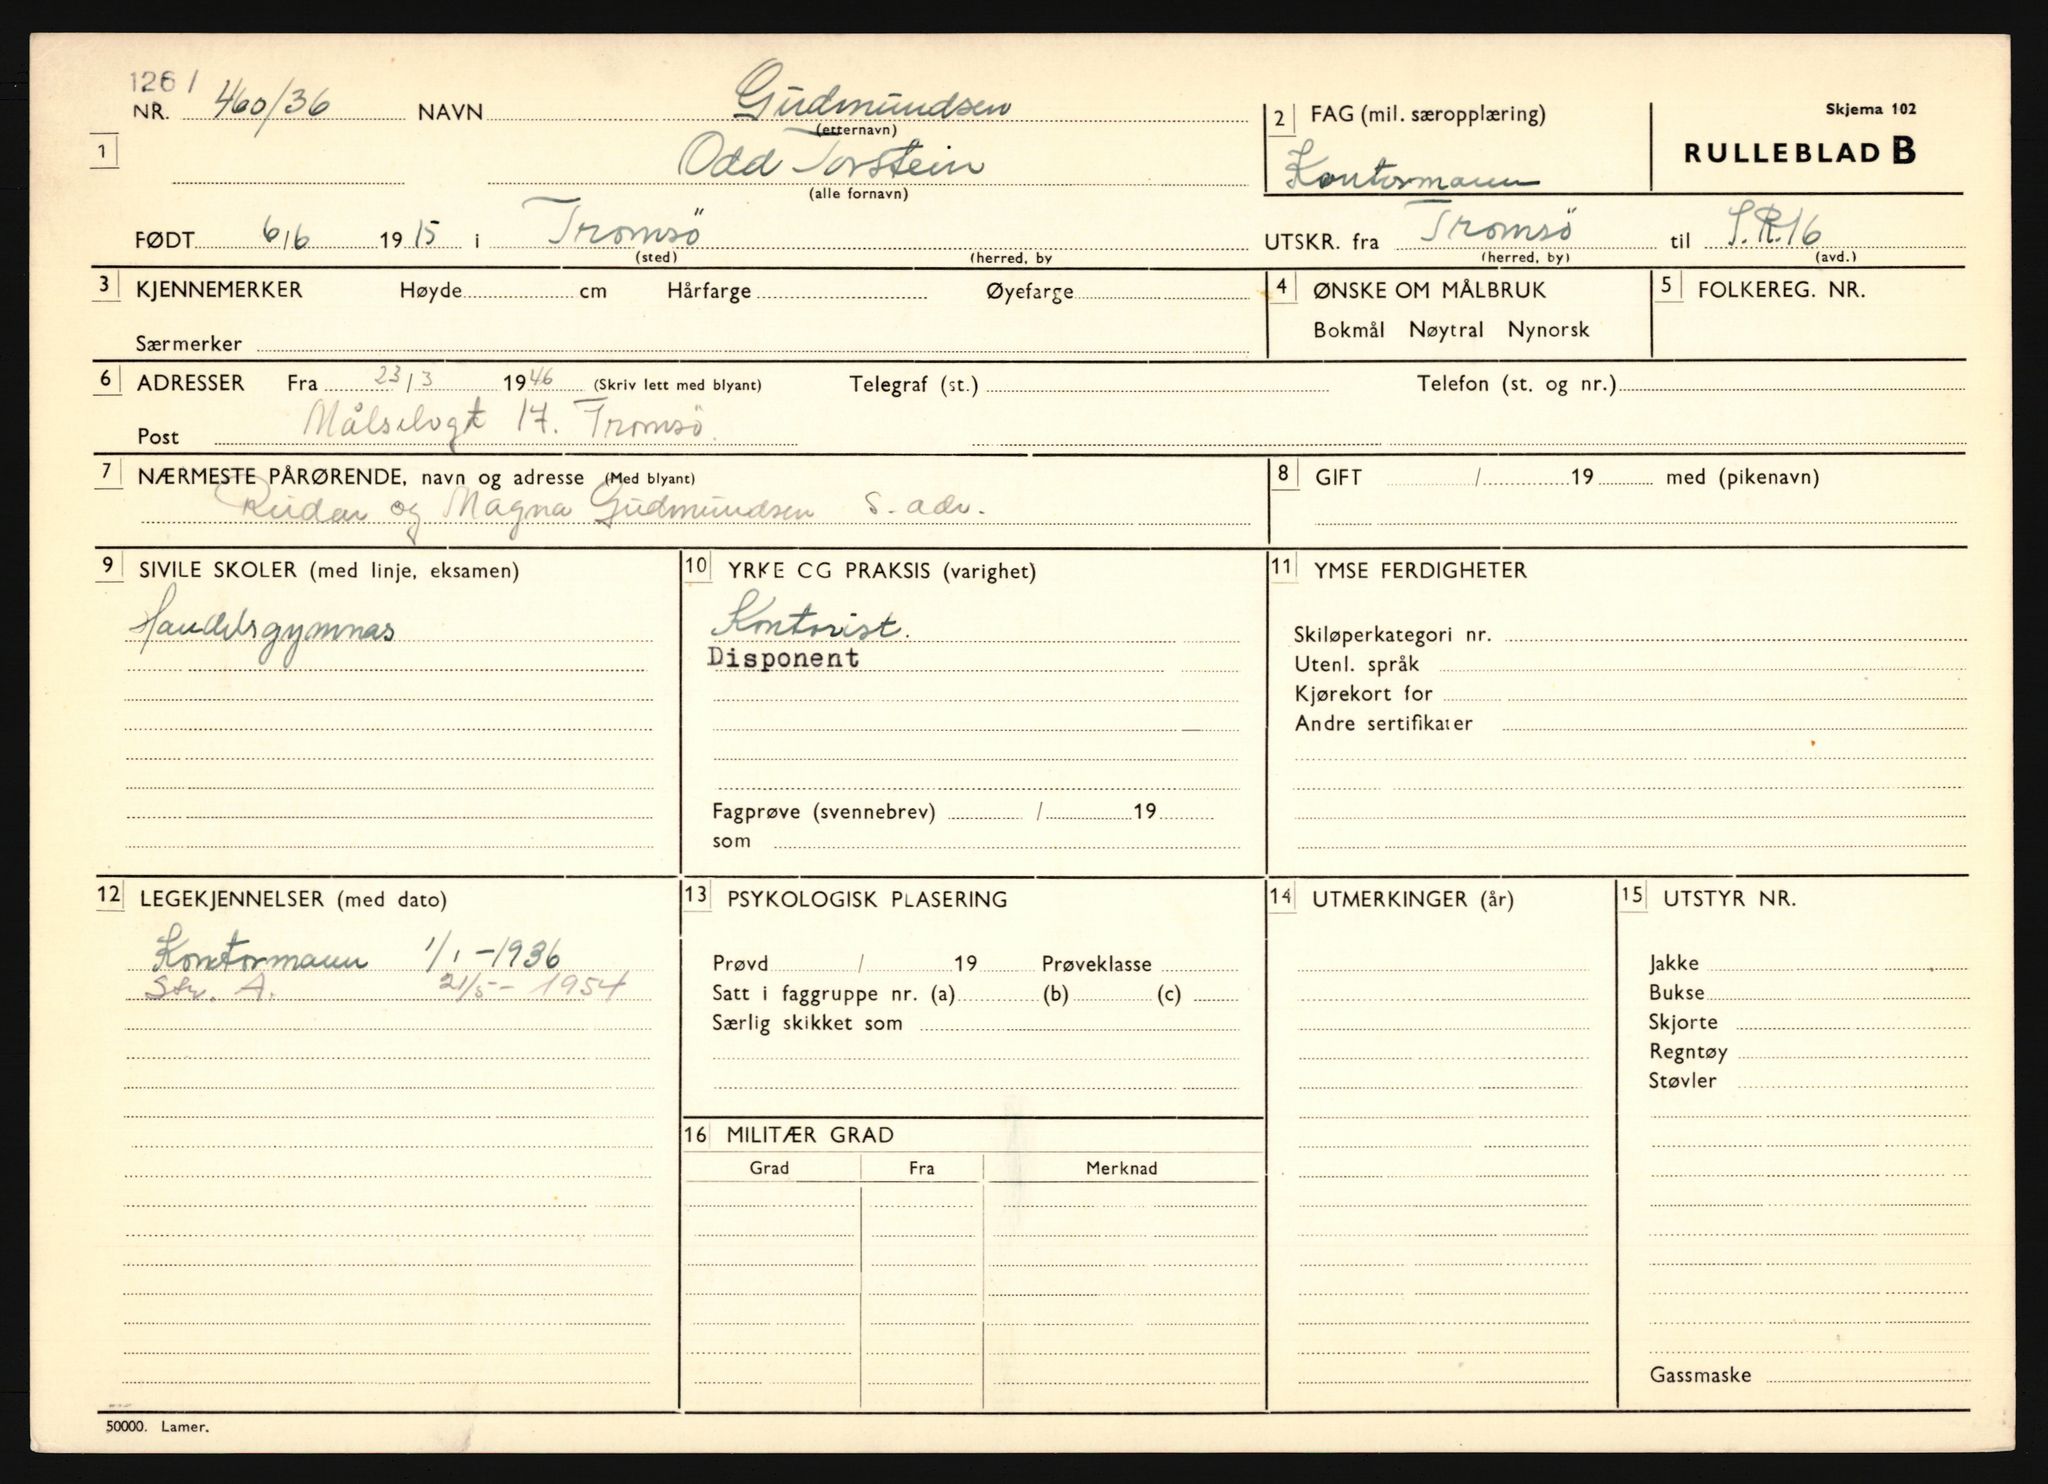 1261
NR. 460/36 NAVN Gudmundsen
(etternavn)
2 FAG (mil. særopplæring)
Skjema 102
RULLEBLAD B
1
Odd Torstein
(alle fornavn)
Kontormann
FØDT 6/6 1915 i Tromsö
(sted) (herred, by
UTSKR. fra Tromsö til S.R.16
(herred, by) (avd.)
3 KJENNEMERKER Høyde cm Hårfarge Øyefarge
Særmerker
4 ØNSKE OM MÅLBRUK
Bokmål Nøytral Nynorsk
5 FOLKEREG. NR.
6 ADRESSER Fra 23/3 1946 (Skriv lett med blyant) Telegraf (st.) Telefon (st. og nr.)
Post Målselvgt 17. Tromsö.
7 NÆRMESTE PÅRØRENDE, navn og adresse (Med blyant)
og Magna Gudmundsen s. adr.
8 GIFT / 19 med (pikenavn)
9 SIVILE SKOLER (med linje, eksamen)
Handelsgymnas
10 YRKE CG PRAKSIS (varighet)
Kontorist.
Disponent
Fagprøve (svennebrev) / 19
som
11 YMSE FERDIGHETER
Skiløperkategori nr.
Utenl. språk
Kjørekort for
Andre sertifikater
12 LEGEKJENNELSER (med dato)
Kontormann 1/1-1936
Str. A. 21/5-1954
13 PSYKOLOGISK PLASERING
Prøvd / 19 Prøveklasse
Satt i faggruppe nr. (a) (b) (c)
Særlig skikket som
14 UTMERKINGER (år)
15 UTSTYR NR.
Jakke
Bukse
Skjorte
Regntøy
Støvler
Gassmaske
16 MILITÆR GRAD
Grad Fra Merknad
50000. Lamer.